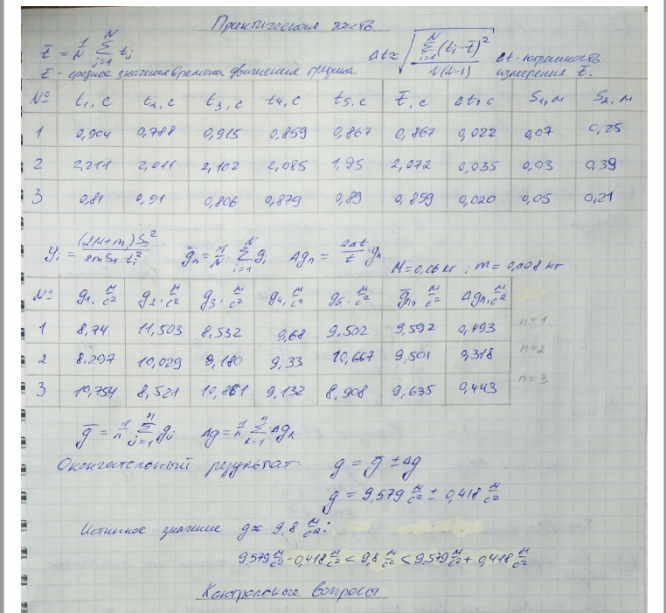 Практическая часть.
t̄ = 1/N ∑_{i=1}^{N} t_i    Δt ≈ √(∑_{i=1}^{N} (t_i - t̄)² / N(N-1))    Δt - погрешность
t̄ - среднее значение времени движения грузика.    измерения t̄.
№ t₁, с t₂, с t₃, с t₄, с t₅, с t̄, с Δt, с S₁, м S₂, м
1 0,904 0,788 0,915 0,859 0,867 0,867 0,022 0,07 0,25
2 2,211 2,011 2,102 2,085 1,95 2,072 0,035 0,03 0,39
3 0,81 0,91 0,806 0,879 0,89 0,859 0,020 0,05 0,21
g_i = (2M+m)S₂² / 2mS₁t_i²    ḡₙ = 1/N · ∑_{i=1}^{N} g_i    Δgₙ = 2Δt/t · gₙ
M = 0,06 кг ; m = 0,008 кг
№ g₁, м/с² g₂, м/с² g₃, м/с² g₄, м/с² g₅, м/с² ḡₙ, м/с² Δgₙ, м/с²
1 8,74 11,503 8,532 9,68 9,502 9,592 0,493 n=1
2 8,297 10,029 9,180 9,33 10,667 9,501 0,318 n=2
3 10,754 8,521 10,861 9,132 8,908 9,635 0,443 n=3
ḡ = 1/n ∑_{i=1}^{n} g_i    Δg = 1/n ∑_{k=1}^{n} Δg_k
Окончательный результат: g = ḡ ± Δg
g = 9,579 м/с² ± 0,418 м/с²
Истинное значение g ≈ 9,8 м/с²:
9,579 м/с² - 0,418 м/с² < 9,8 м/с² < 9,579 м/с² + 0,418 м/с²
Контрольные вопросы